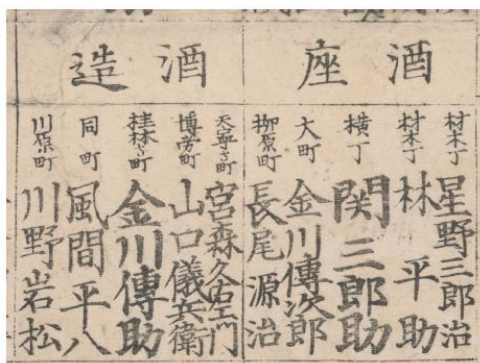 酒座
材木丁 星野三郎治
材木丁 林平助
横丁 関三郎助
大町 金川傳次郎
柳原町 長尾源治
酒造
天寧寺町 宮森久左衛門
博労町 山口儀兵衛
桂林寺町 金川傳助
同町 風間平八
川原町 川野岩松